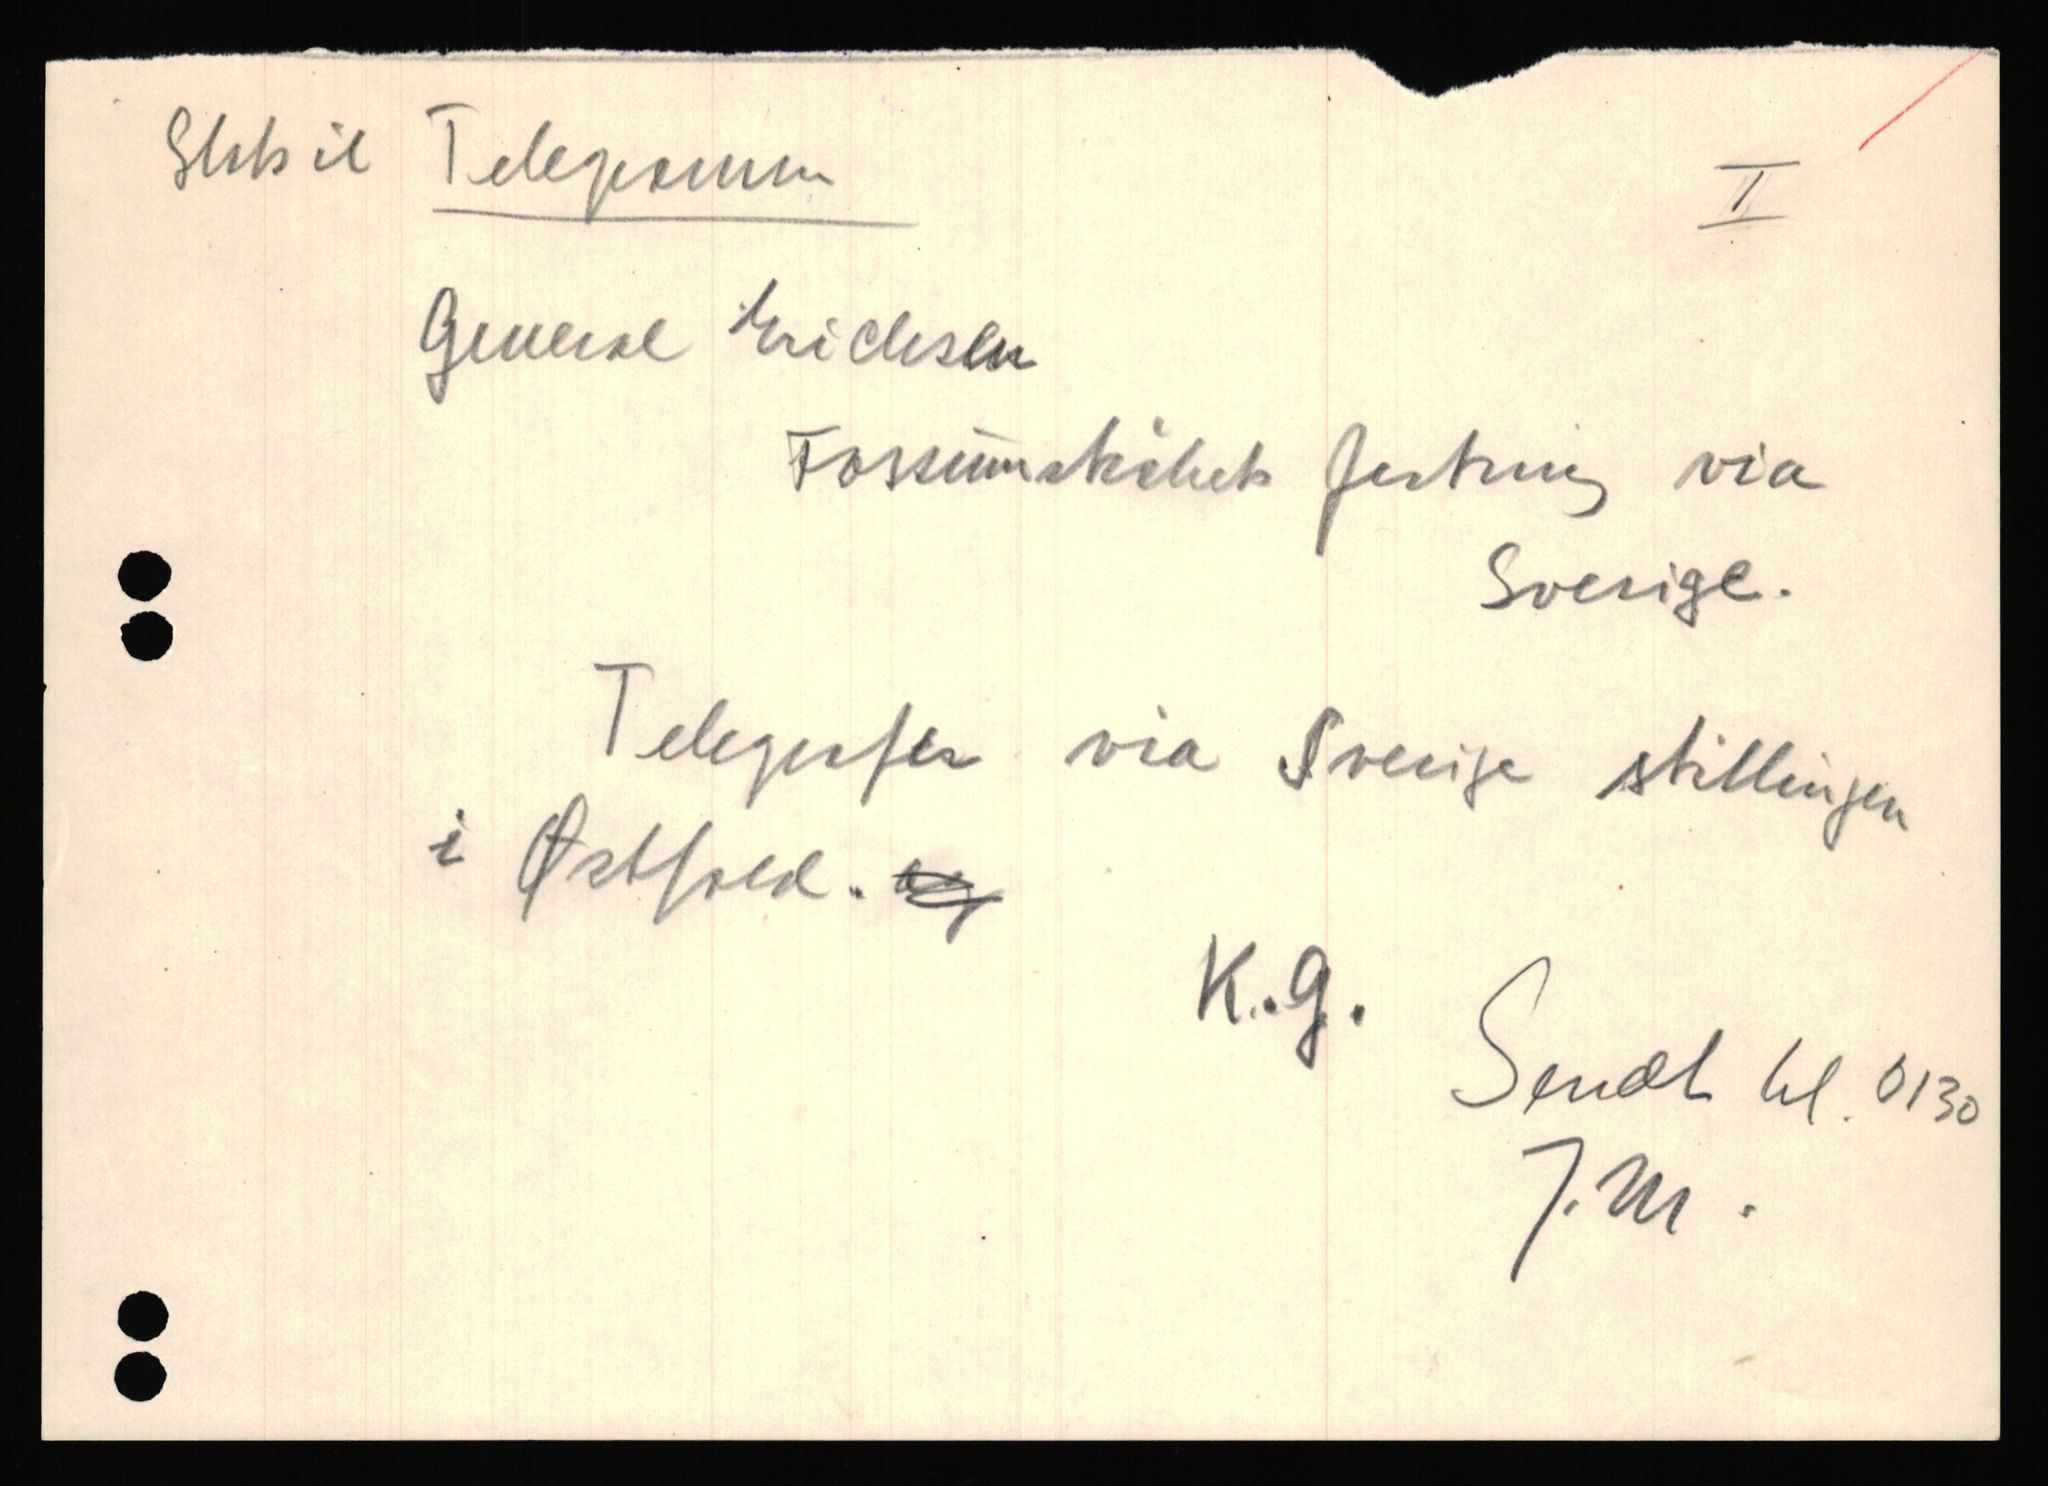 Statsil Telegramm
I
General Erichsen
Fossumstrøkets festning via
Sverige.
Telegrafer via Sverige stillingen
i Østfold.
K.G.
Sendt kl. 0130
J.M.